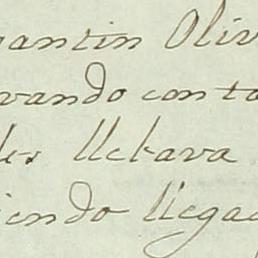 rantin Oliv
vando con ta
les llebava
iendo llegad